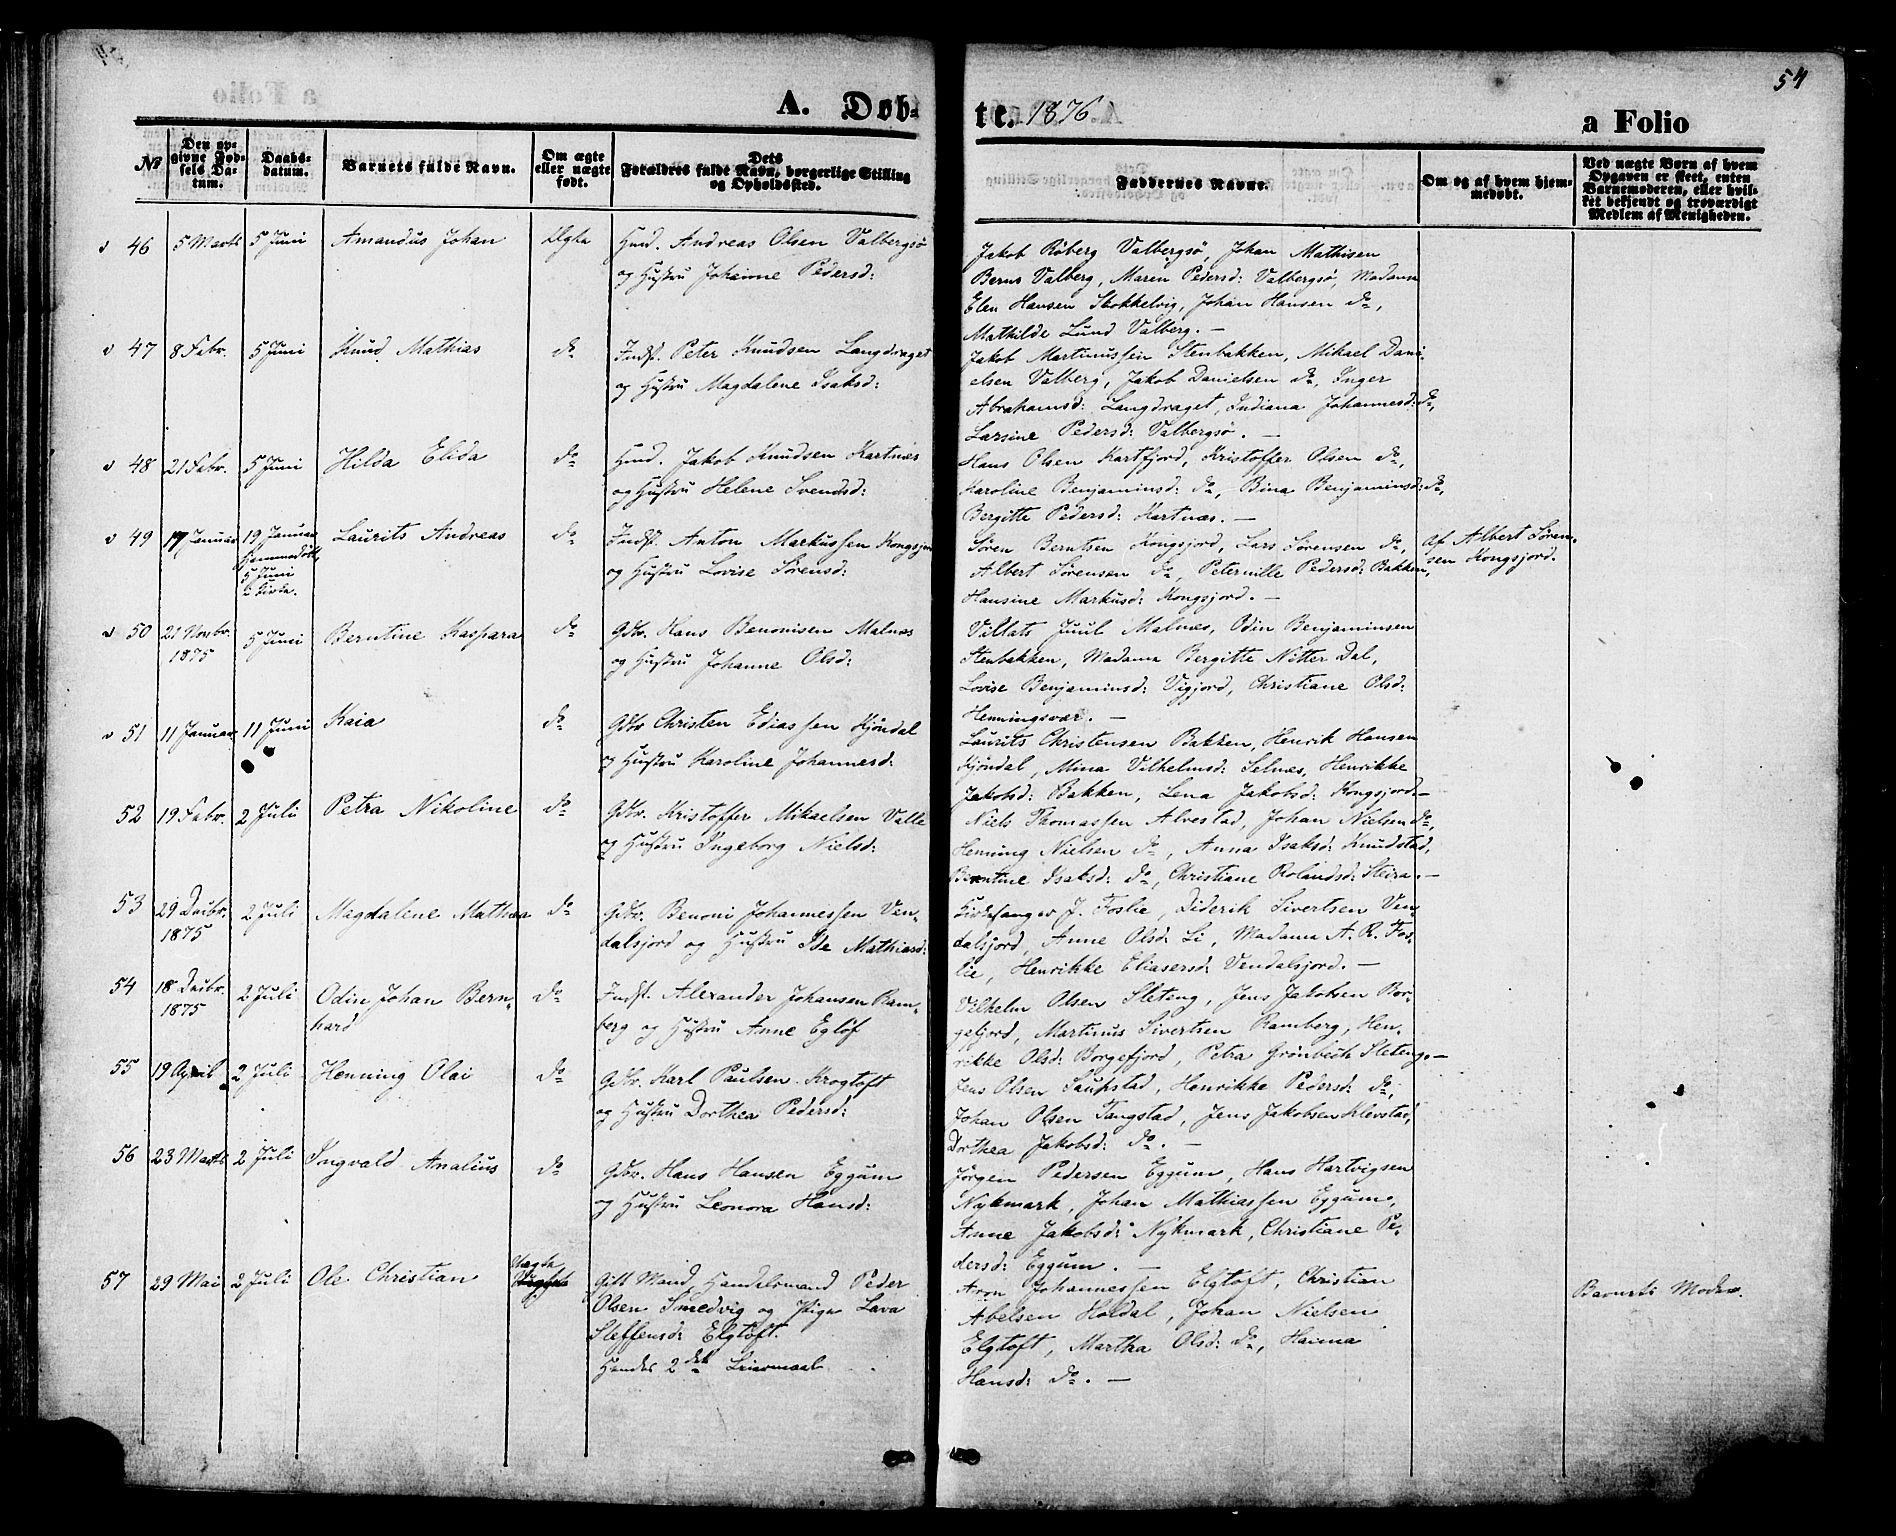 54
A. Døb-
te. 1876
a Folio
No
Den op-
givne Fød-
sels Da-
tum.
Daabs-
datum.
Barnets fulde Navn.
Om ægte
eller uægte
født.
Dets
Forældres fulde Navn, borgerlige Stilling
og Opholdssted.
Faddernes Navne.
Om og af hvem hjem-
medøbt.
Ved uægte Børn af hvem
Opgaven er skeet, enten
Barnemoderen, eller hvil-
ket bekjendt og troværdigt
Medlem af Menigheden.
v 46 5 Marts 5 Juni Amandus Johan Ægte Hmd. Andreas Olsen Valbergsø
og Hustru Johanne Pedersd:
Jakob Røberg Valbergsø, Johan Mathisen
Berns Valberg, Maren Pedersd: Valbergsø, Madame
Elen Hansen Stokkelvig, Johan Hansen do,
Mathilde Lund Valberg. —
v 47 8 Febr. 5 Juni Knud Mathias do Indst. Peter Knudsen Langdraget
og Hustru Magdalene Isaksd:
Jakob Martinussen Stenbakken, Mikael Dani-
elsen Valberg, Jakob Danielsen do, Inger
Abrahamsd: Langdraget, Indiana Johannesd: do,
Larsine Pedersd: Valbergsø. —
v 48 21 Febr. 5 Juni Hilda Elida do Hmd. Jakob Knudsen Kartnæs
og Hustru Helene Svendsd:
Hans Olsen Kartfjord, Kristoffer Olsen do,
Karoline Benjaminsd: do, Bina Benjaminsd: do,
Bergitte Pedersd: Kartnæs. —
v 49 17 Januar 19 Januar
Hjemmedøbt,
5 Juni
i Kirke.
Laurits Andreas do Indst. Anton Markussen Kongsjord
og Hustru Lovise Sørensd:
Søren Berntsen Kongsjord, Lars Sørensen do,
Albert Sørensen do, Peternille Pedersd: Bakken,
Hansine Markusd: Kongsjord. —
Af Albert Søren-
sen Kongsjord.
v 50 21 Novbr.
1875
5 Juni Berntine Kaspara do Gdbr. Hans Benonisen Malnæs
og Hustru Johanne Olsd:
Villats Juul Malnæs, Odin Benjaminsen
Stenbakken, Madame Bergitte Nitter Dal,
Lovise Benjaminsd: Vigjord, Christiane Olsd:
Henningsvær. —
v 51 11 Januar 11 Juni Kaia do Gdbr Christen Ediassen Hjøndal
og Hustru Karoline Johannesd:
Laurits Christensen Bakken, Henrik Hansen
Hjøndal, Mina Vilhelmsd: Selnæs, Henrikke
Jakobsd: Bakken, Lena Jakobsd: Kongsjord —
52 19 Febr. 2 Juli Petra Nikoline do Gdbr. Kristoffer Mikaelsen Valle
og Hustru Ingeborg Nielsd:
Niels Thomassen Alvestad, Johan Nielsen do,
Henning Nielsen do, Anna Isaksd: Knudstad,
Berntine Isaksd: do, Christiane Rolandsd: Steira. —
53 29 Decbr.
1875
2 Juli Magdalene Mathea do Gdbr. Benoni Johannessen Ven-
dalsjord og Hustru Ide Mathiasd:
Kirkesanger J. Foslie, Diderik Sivertsen Ven-
dalsjord, Anne Olsd: Li, Madame A. R. Fos-
lie, Henrikke Eliasersd: Vendalsjord. —
54 18 Decbr.
1875
2 Juli Odin Johan Bern-
hard
do Indst. Alexander Johansen Ram-
berg og Hustru Anne Egløf
Vilhelm Olsen Sleteng, Jens Jakobsen Bor-
gefjord, Martinus Sivertsen Ramberg, Hen-
rikke Olsd: Borgefjord, Petra Grønbech Sleteng. —
55 19 April 2 Juli Henning Olai do Gdbr. Karl Paulsen Krogtoft
og Hustru Dorthea Pedersd:
Jens Olsen Saupstad, Henrikke Pedersd: do,
Johan Olsen Tangstad, Jens Jakobsen Klevstad,
Dorthea Jakobsd: do. —
56 23 Marts 2 Juli Ingvald Analius do Gdbr. Hans Hansen Eggum
og Hustru Leonora Hansd:
Jørgen Pedersen Eggum, Hans Hartvigsen
Nykmark, Johan Mathiassen Eggum,
Anne Jakobsd: Nykmark, Christiane Pe-
dersd: Eggum. —
57 29 Mai 2 Juli Ole Christian Uægte
Gift Mand, Handelsmand Peder
Olsen Smedvig og Pige Lava
Steffensd: Elgtoft.
Hendes 2det Leiermaal.
Aron Johannessen Elgtoft, Christian
Abelsen Holdal, Johan Nielsen
Elgtoft, Martha Olsd: do, Hanna
Hansd: do. —
Barnets Moder.